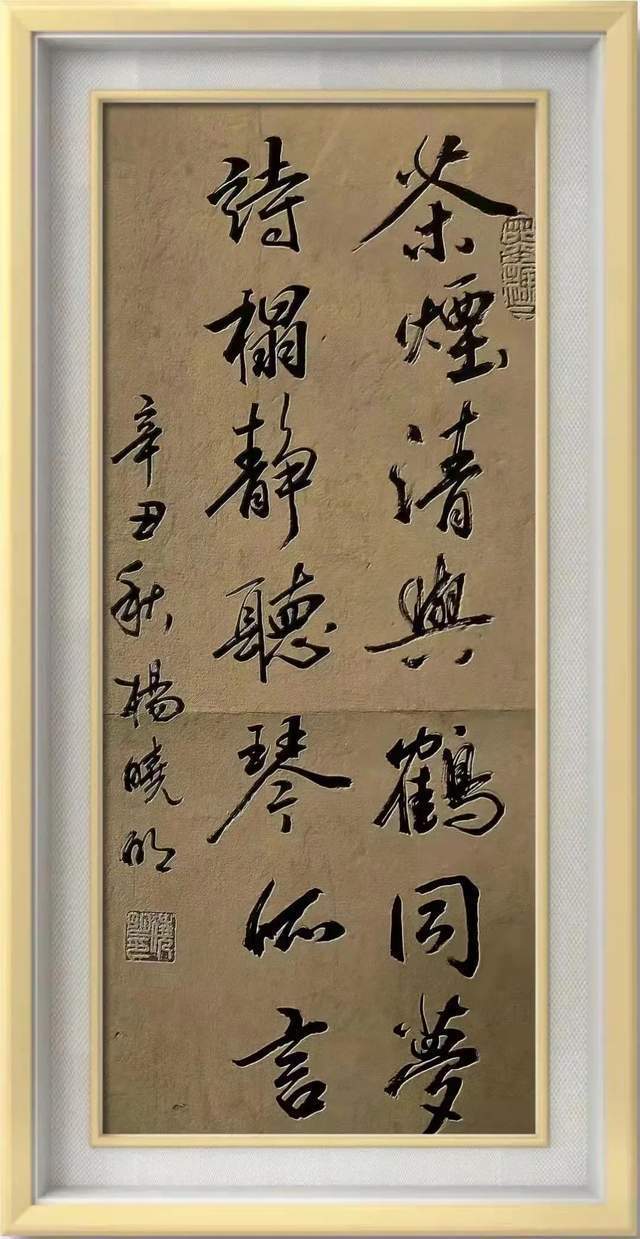 茶煙清與鶴同夢
詩榻靜聽琴所言
辛丑秋楊曉明